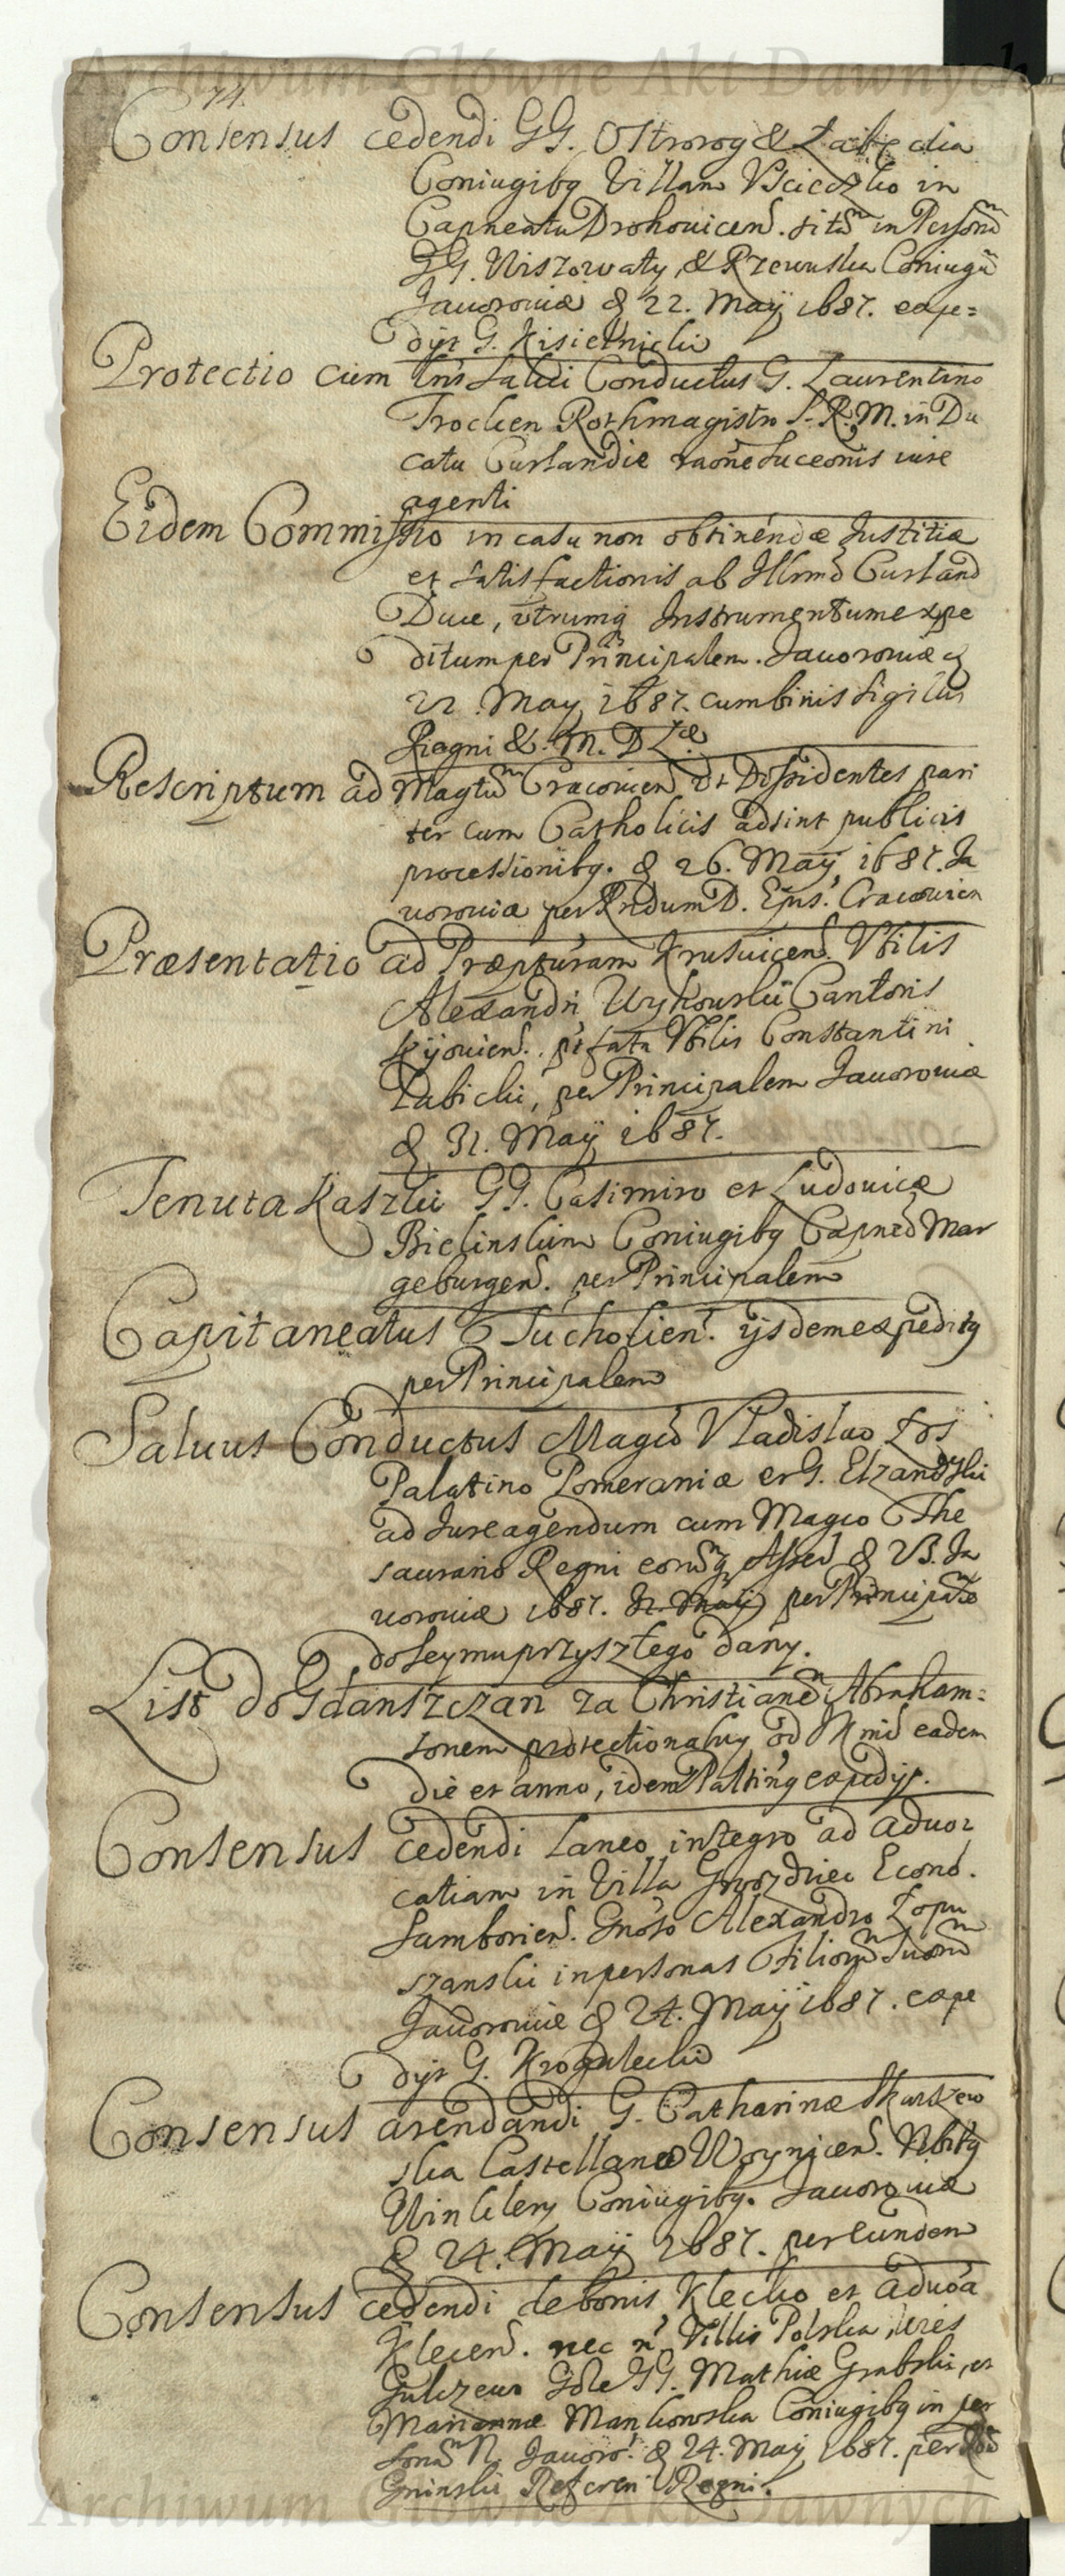 Archiwum Główne Akt Dawnych
74.
Consensus cedendi GG. Ostrorog &
Coniugibq Villam Vscieczko in
Capneatu Drohouicen. sitam in Personas
GG. Niszowaty, & Rzewuska Coniugu
Jauoroviæ & 22. Maÿ 1687. expe=
dyt G. Kisielnicki
Protectio cum Lris Salui Conductus G. Laurentino
Trocken Rothmagistro S. R. M. in Du
catu Curlandiæ raõne Succeõnis iure
agenti
Eidem Commissio in casu non obtinendæ Justitiæ
et satisfactionis ab Illrmo Curland
Duce, vtrumq Instrumentum expe
ditum per Principalem. Jauoroviæ &
22 May 1687. cum binis sigillis
Regni & M. D. L.
Rescriptum ad Magtum Cracovien vt Dissidentes pari
ter cum Catholicis adsint publicis
processionibq. & 26. Maÿ 1687. Ja
uoroviæ per Rndum D. Epus. Cracovien
Præsentatio ad Præpturam Krusuicen. Vbilis
Alexandri Uzykowski Cantoris
Kijovien. pt fata Vbilis Constantini
Zabicki, per Principalem Jauoroviæ
& 31. Maÿ 1687.
Tenuta Kaszki GG. Casimiro et Ludouicæ
Bielinskim Coniugibq Capned Mar
geburgen. per Principalem
Capitaneatus Tucholien. ijsdem expeditq
per Principalem
Saluus Conductus Magco Vladislao Łoś
Palatino Pomeraniæ et G. Elzanowski
ad Jure agendum cum Magco The
saurario Regni eorumq & VB. Ja
uoroviæ 1687. per Principalem
do Seymu przyszłego dany.
List do Gdanszczan za Christianem Abraham=
sonem protectionalny od K mci eadem
die et anno, idem expedijt.
Consensus cedendi Laneo integro ad aduo
catiam in Villa Grozdziec Econo.
Samborien. Gnoso Alexandro Łopu
szanski in personas Filiorum Suorum
Jauoroviæ & 24. Maÿ 1687. expe
dyt G. Krogulecki
Consensus arendandi G. Catharinæ Skarszew
ska Castellanæ Woynicen. Nbibq
Winklery Coniugibq. Jauoroviæ
& 24. Maÿ 1687. per eundem
Consensus cedendi de bonis Klecko et aduoa
Klecen. nec n Villis Polska wies
Gulczewo GG. Mathiæ Grabski, et
Mariannæ Mankowska Coniugibq in per
sonam N. Jauoro. & 24. Maÿ 1687. per
Gninski Referen Regni.
Archiwum Główne Akt Dawnych